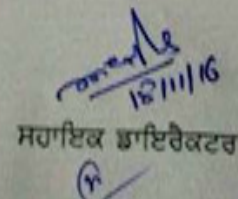 18/11/16
ਸਹਾਇਕ ਡਾਇਰੈਕਟਰ